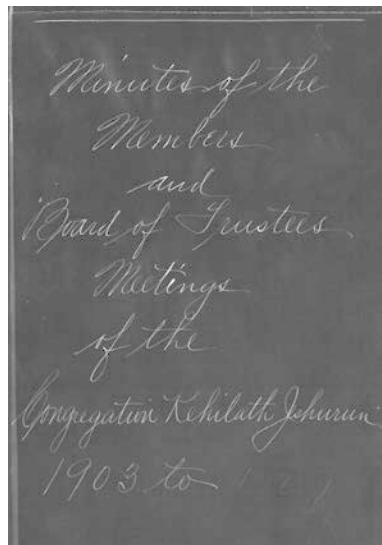 Minutes of the
Members
and
Board of Trustees
Meetings
of the
Congregation Kehilath Jeshurun
1903 to